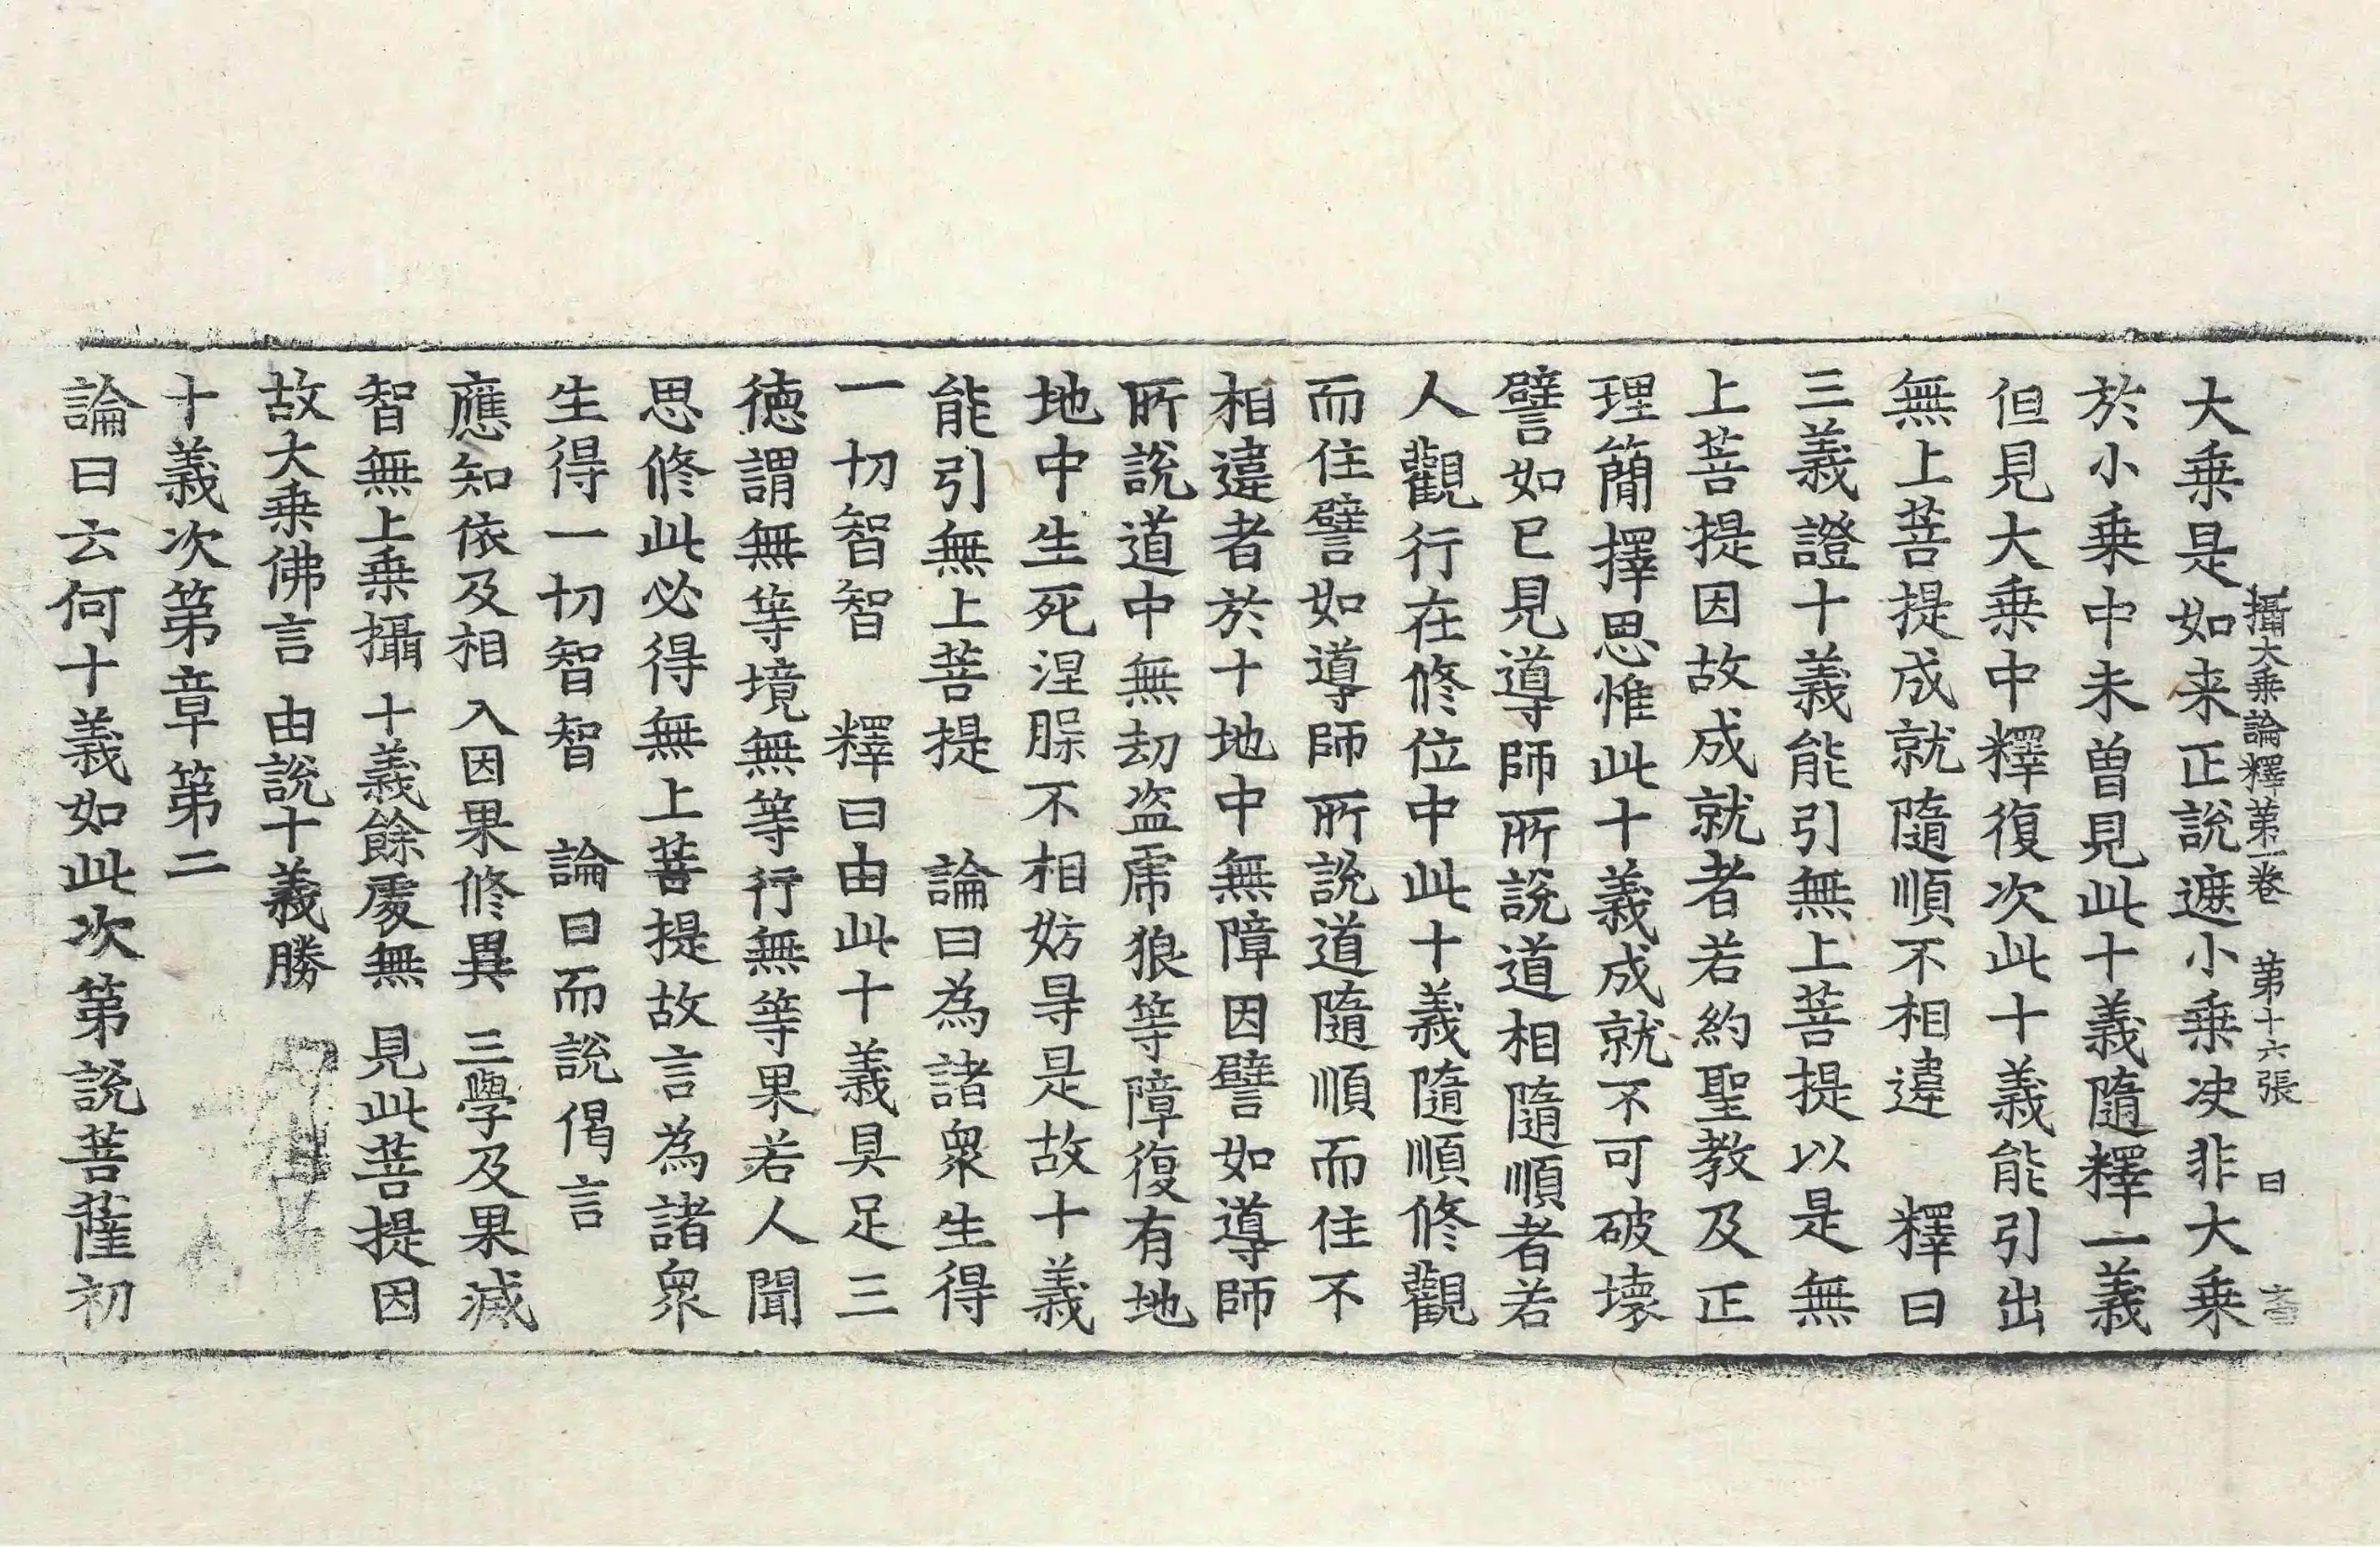 攝大乗論釋第一卷 第十六張 曰
大乗是如来正說遮小乗决非大乗
於小乗中未曽見此十義隨釋一義
但見大乗中釋復次此十義能引出
無上菩提成就隨順不相違 釋曰
三義證十義能引無上菩提以是無
上菩提因故成就者若約聖教及正
理簡擇思惟此十義成就不可破壊
譬如已見導師所說道相隨順者若
人觀行在修位中此十義隨順修觀
而住譬如導師所說道隨順而住不
相違者於十地中無障因譬如導師
所說道中無劫盗虎狼等障復有地
地中生死涅槃不相妨㝵是故十義
能引無上菩提 論曰為諸衆生得
一切智智 釋曰由此十義具足三
德謂無等境無等行無等果若人聞
思修此必得無上菩提故言為諸衆
生得一切智智 論曰而說偈言
應知依及相 入因果修異 三學及果減
智無上乗攝 十義餘處無 見此菩提因
故大乗佛言 由說十義勝
十義次第章第二
論曰云何十義如此次第說菩薩初